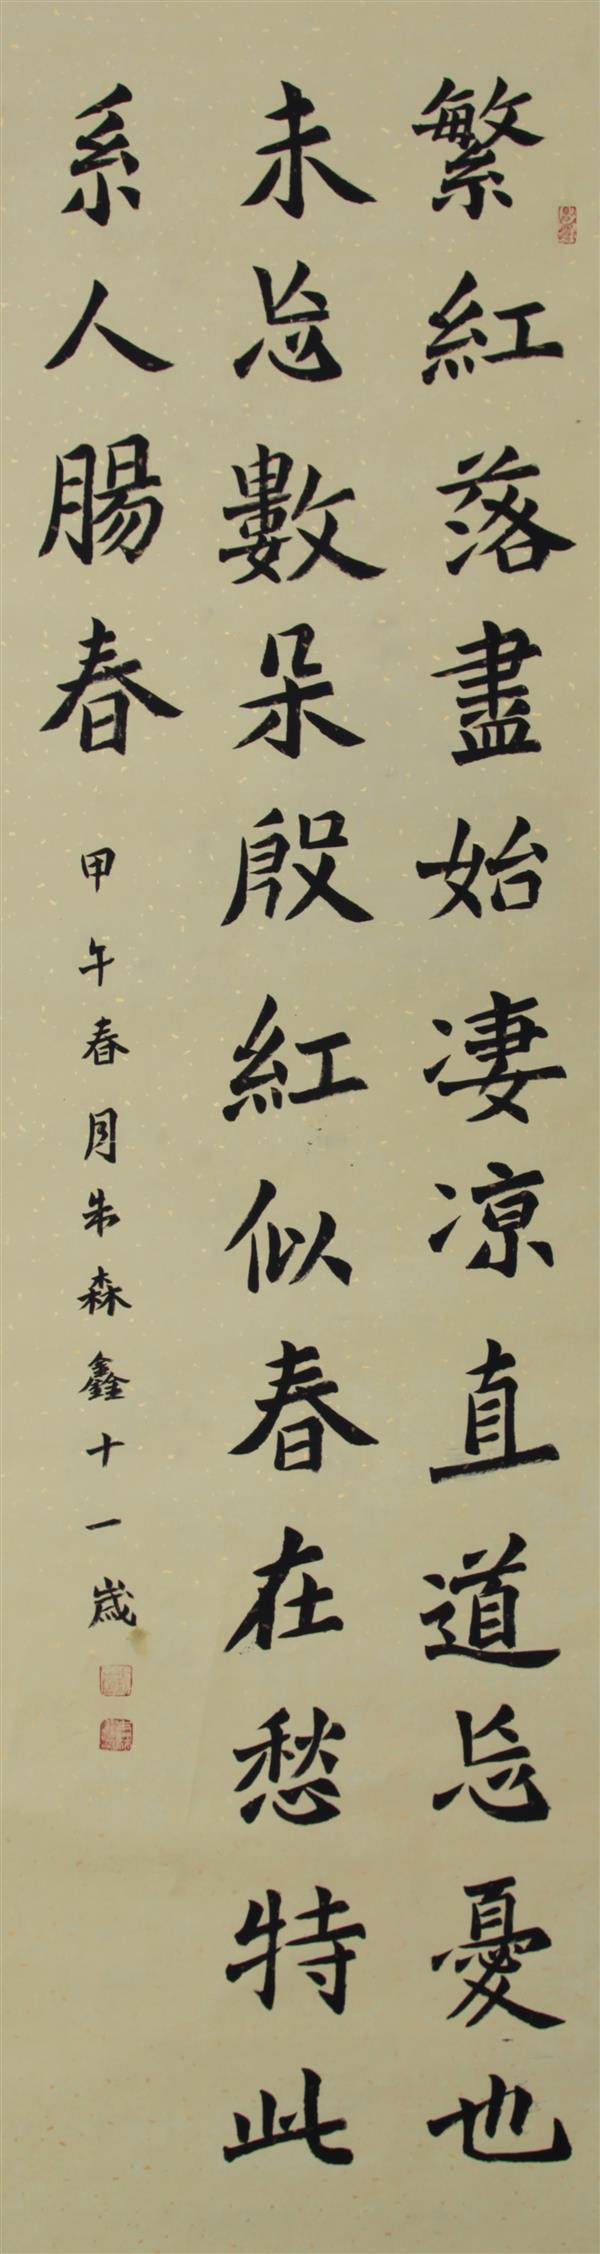 繁紅落盡始淒凉直道忘憂也
未忘數朵殷紅似春在愁特此
系人腸春
甲午春月朱森鑫十一歲